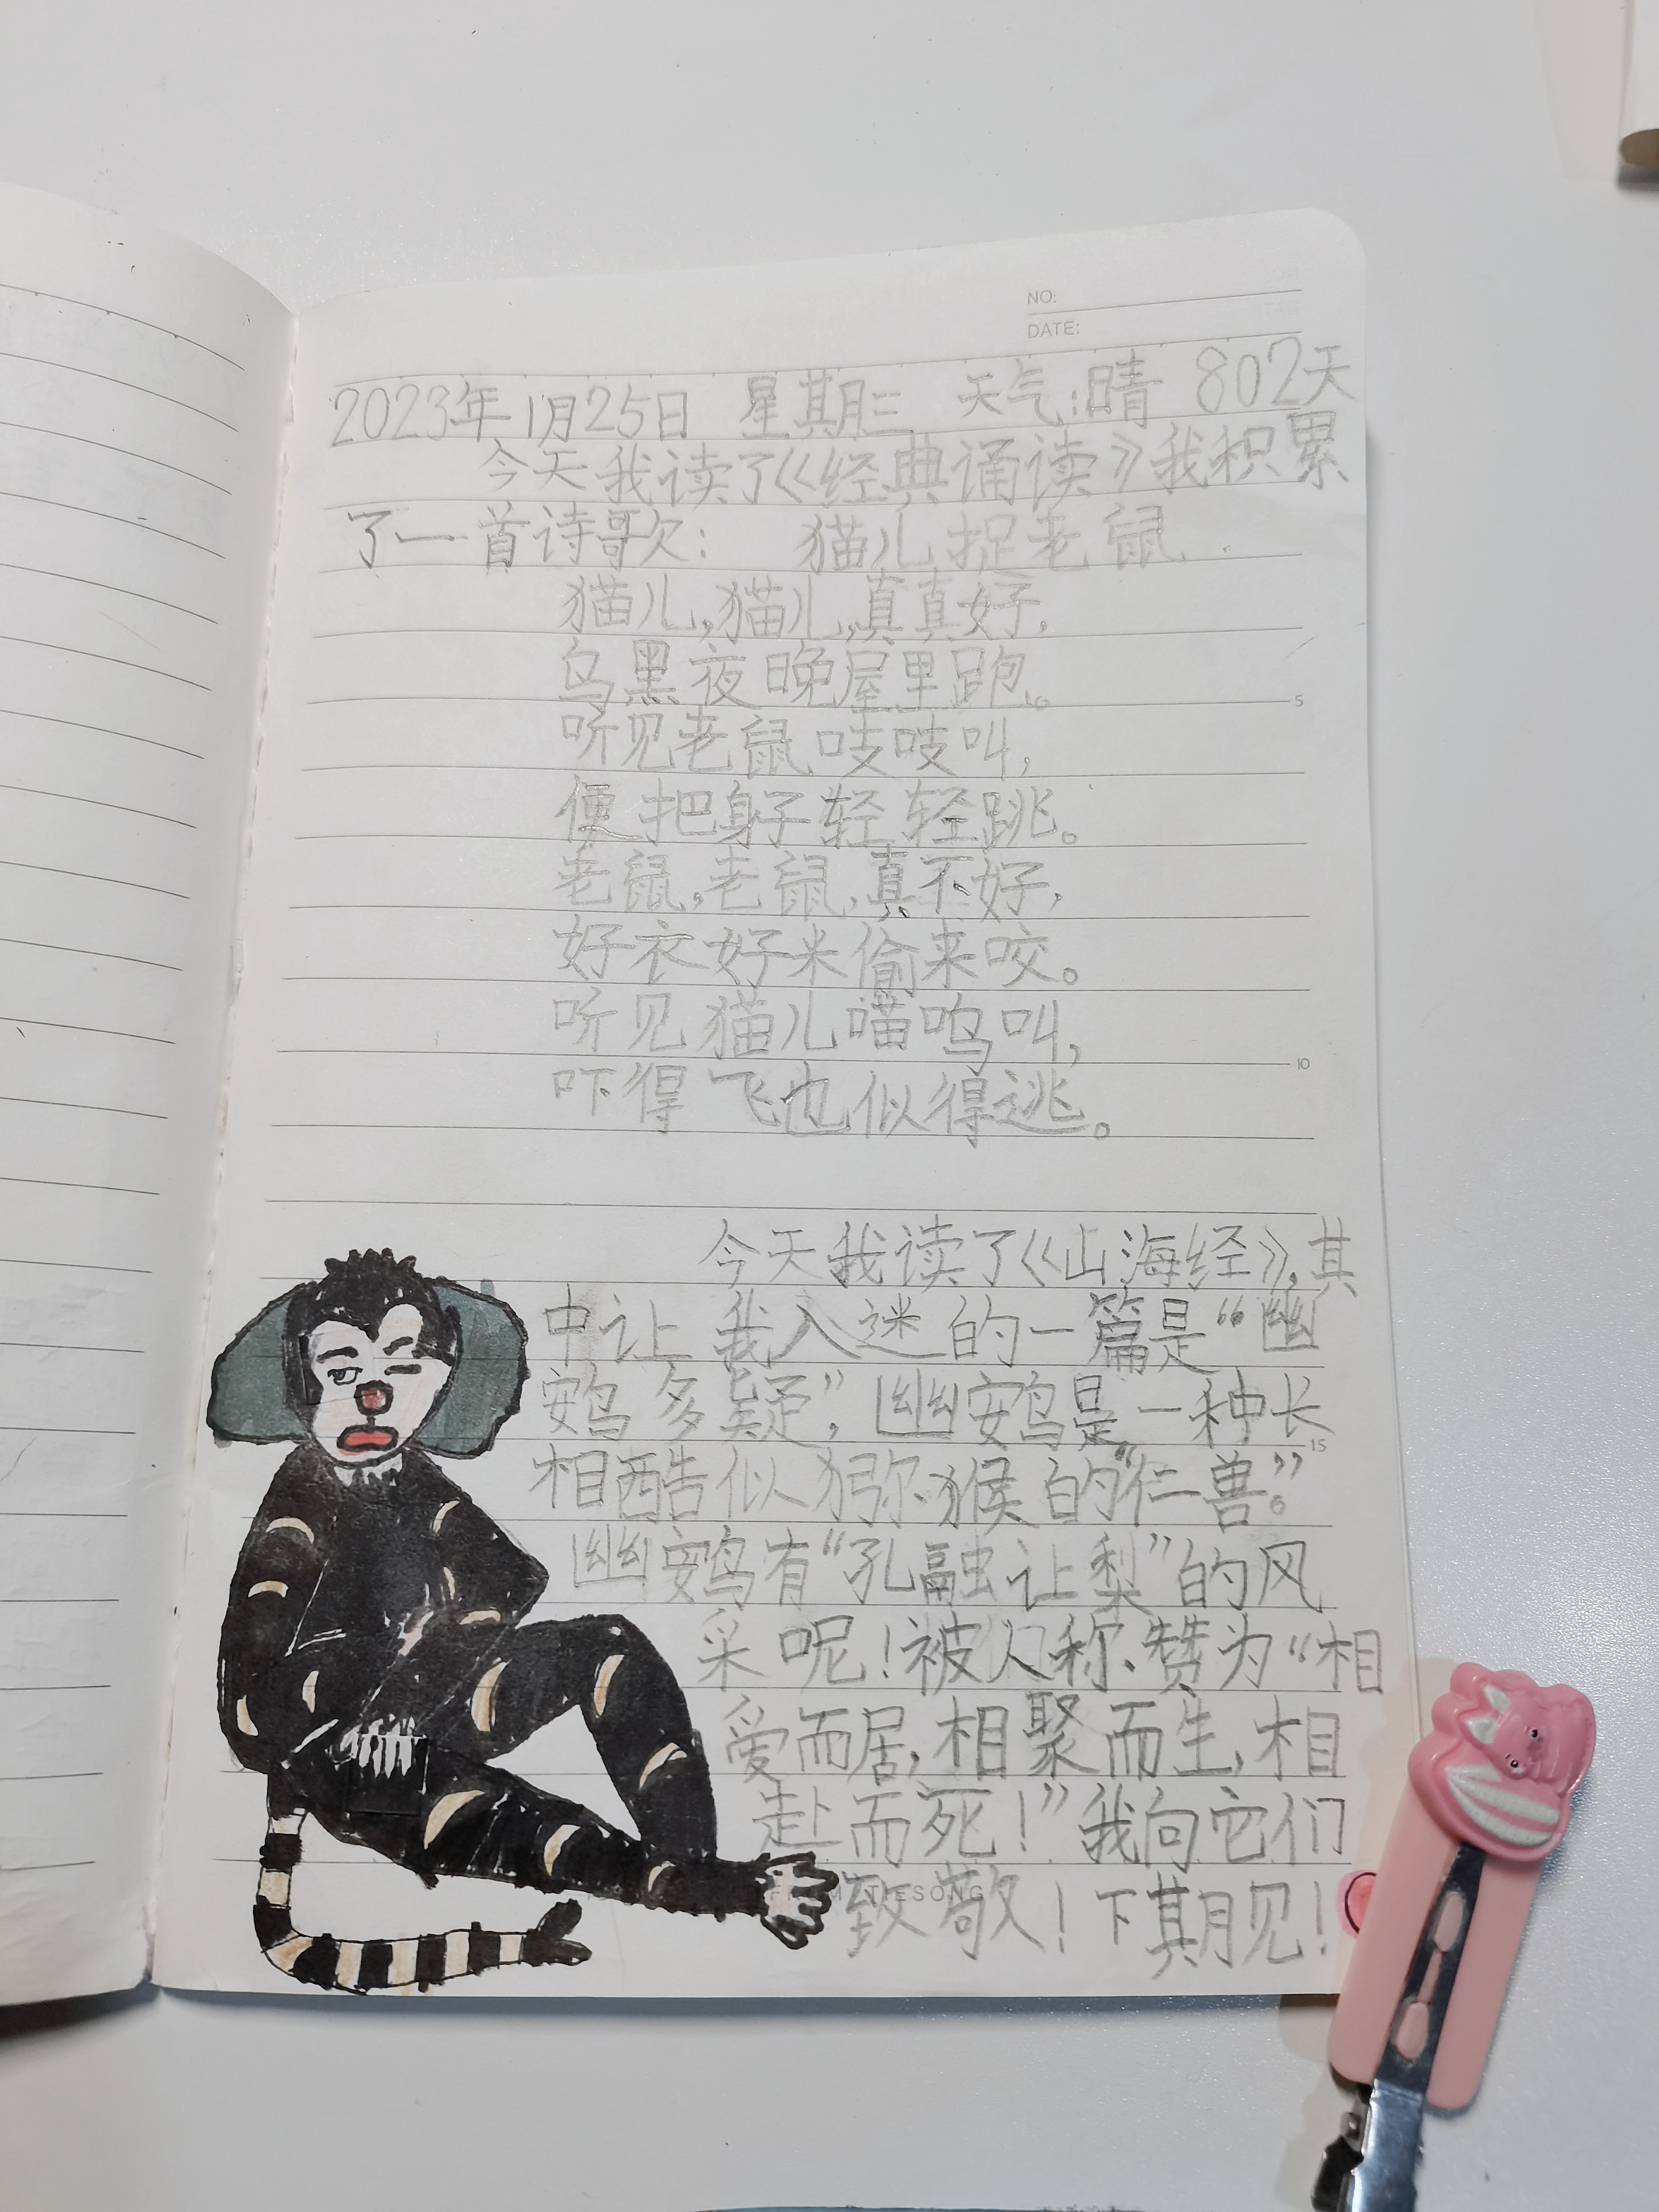 NO:
DATE:
2023年1月25日 星期三 天气:晴 802天
今天我读了《经典诵读》我积累
了一首诗歌: 猫儿捉老鼠
猫儿,猫儿,真真好,
乌黑夜晚屋里跑。
5
听见老鼠吱吱叫,
便把身子轻轻跳。
老鼠,老鼠,真不好,
好衣好米偷来咬。
听见猫儿喵呜叫,
10
吓得飞也似得逃。
今天我读了《山海经》,其
中让我入迷的一篇是“幽
鴳多疑”,幽鴳是一种长
15
相酷似猕猴的“仁兽”。
幽鴳有“孔融让梨”的风
采呢!被人称赞为“相
爱而居,相聚而生,相
赴而死!”我向它们
致敬!下期见!